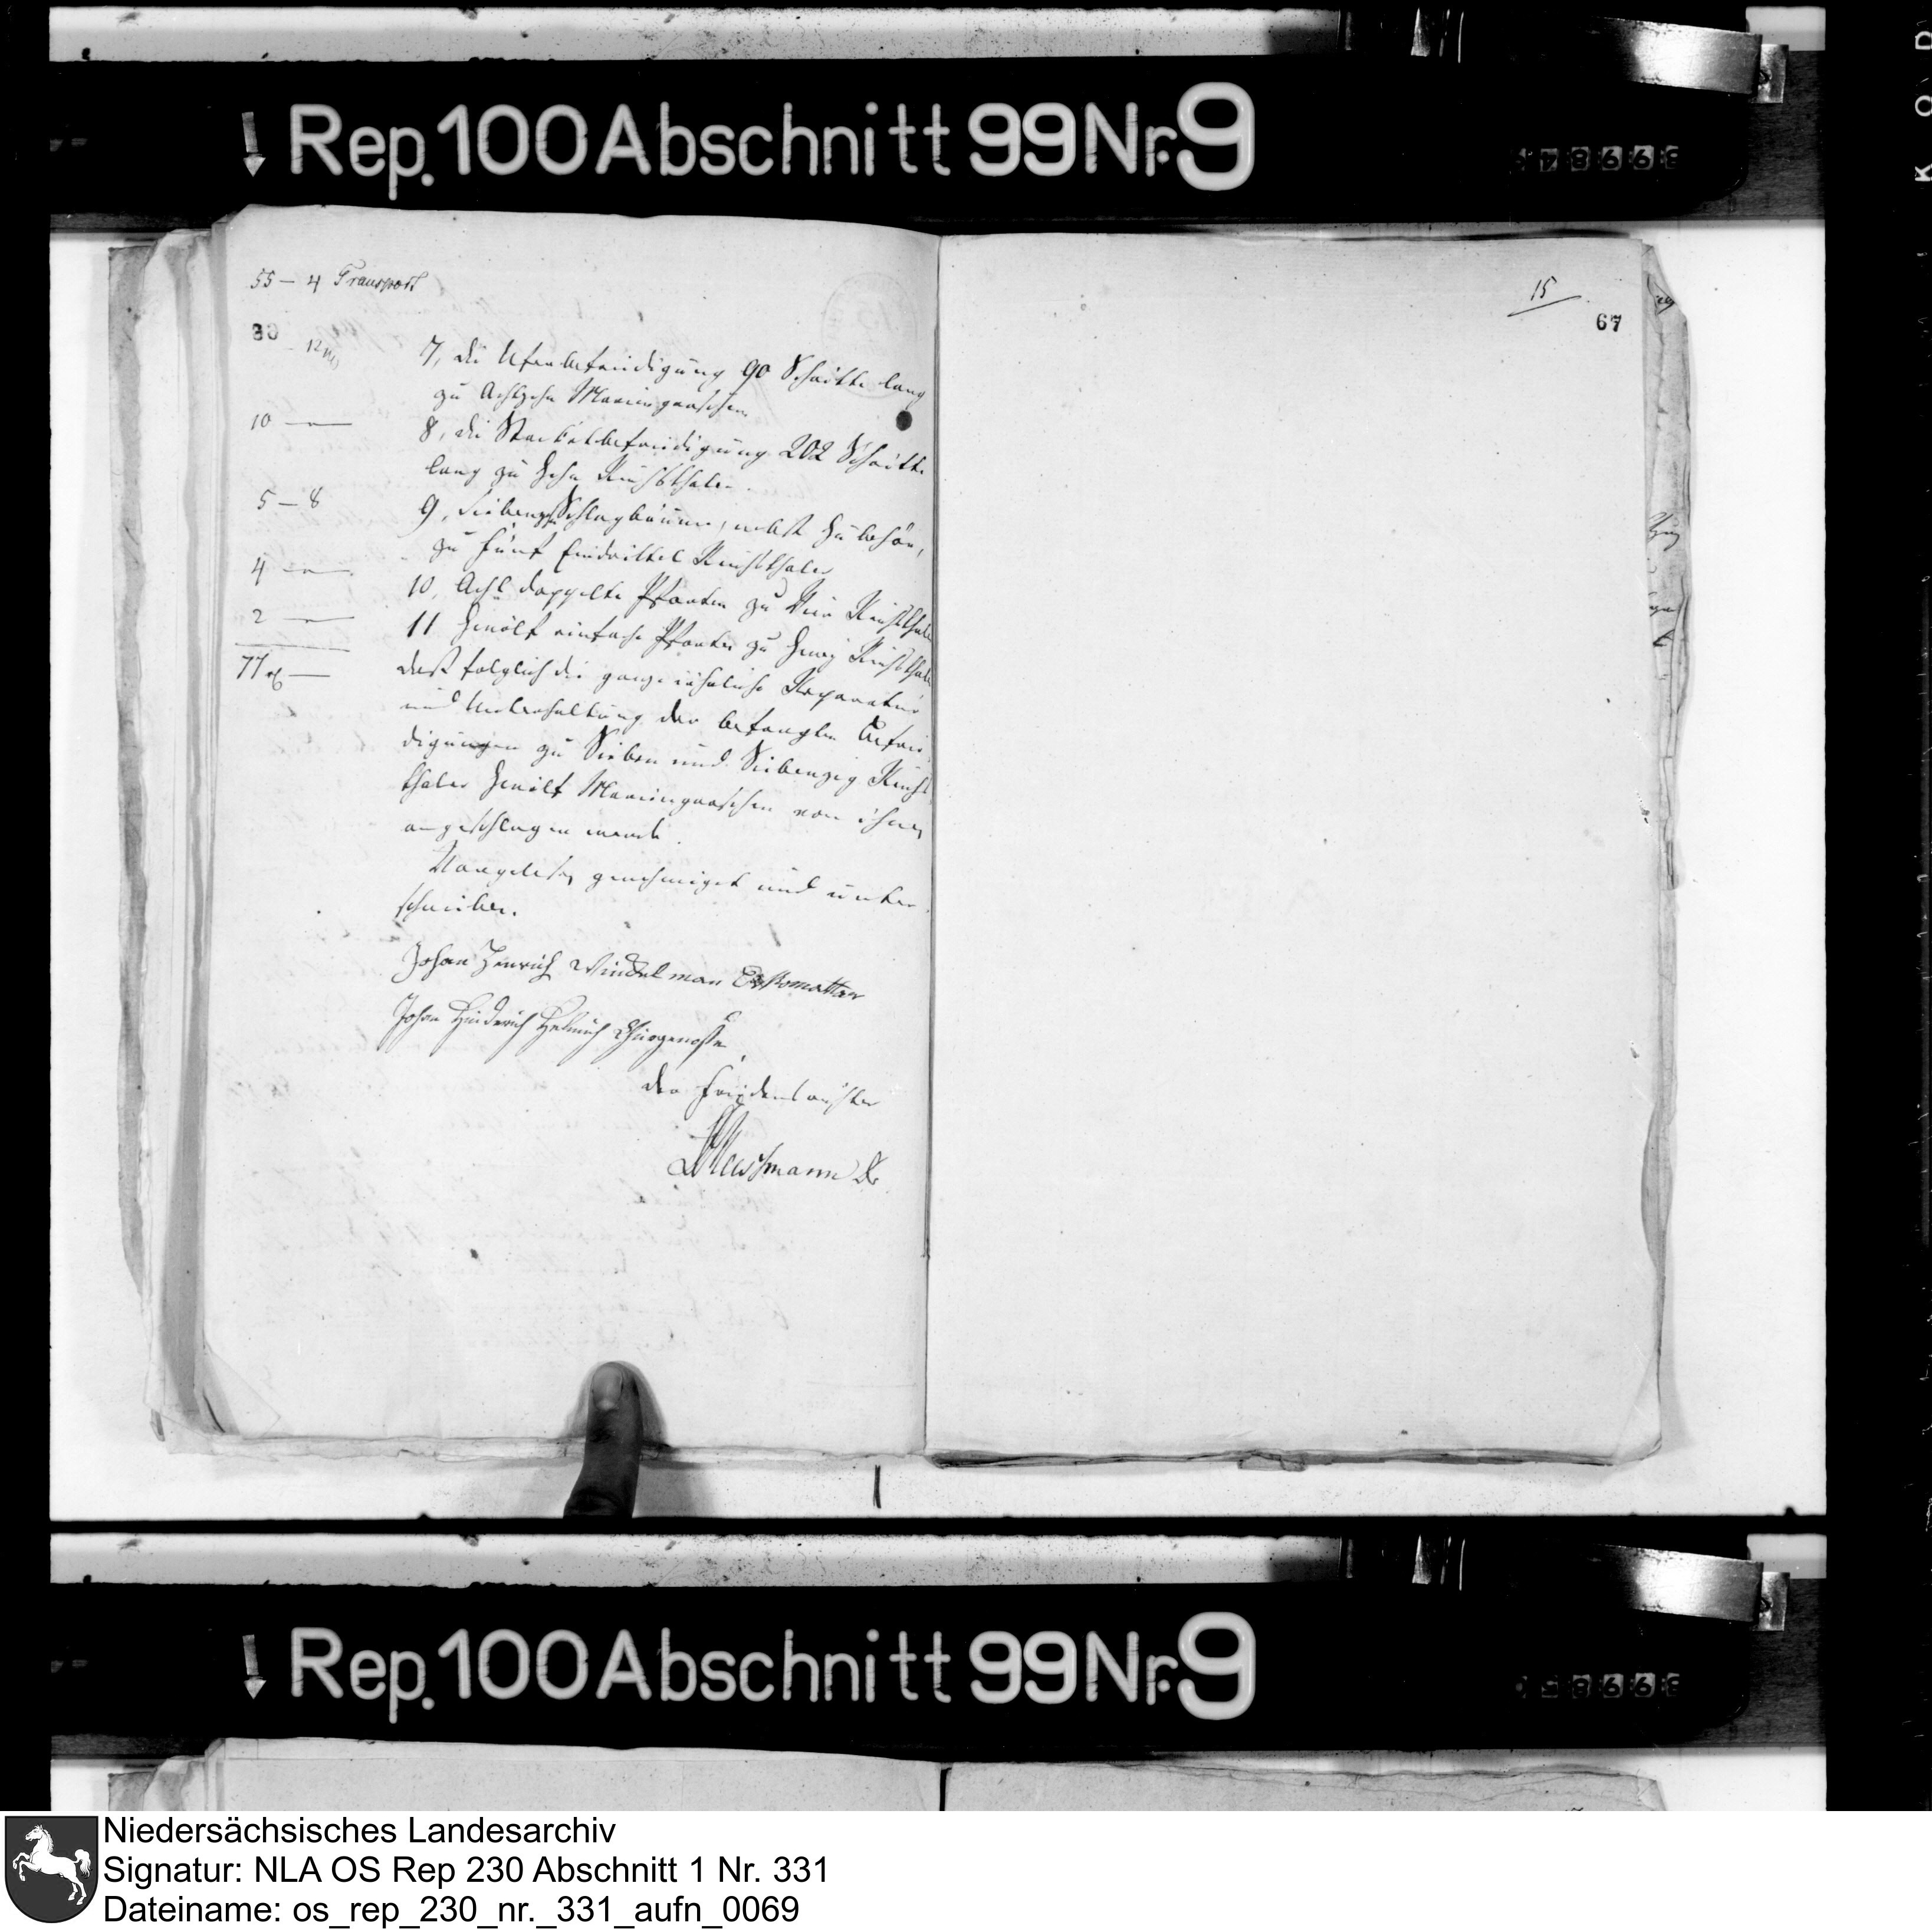 Rep. 100 Abschnitt 99 Nr. 9
55 – 4 Transport
15
67
30
– 12 mg
7, die Uferbefriedigung 90 Schritte lang
zu Achtzehn Mariengroschen
10 –
8, die Stackelbefriedigung 202 Schritte
lang zu Zehn Reichsthaler.
5 – 8
9, Schlagbäume, nebst Zubehör,
zu fünf Eindrittel Reichsthaler
4 –
10, Acht doppelte Pforten zu Vier Reichsthaler
2 –
11 Zwölf einfache Pforten zu Zwey Reichsthaler
77 –
daß folglich die ganze jährliche Reparatur
und Unterhaltung der befragten Befrie
digungen zu Sieben und Siebenzig Reichs
thaler Zwölf Mariengroschen von ihnen
angeschlagen werde.
Vorgelesen genehmiget und unter
schrieben.
Johan Henrich Windelman
Johan Hinderich Helmich
der Friedensrichter
Dr
Rep. 100 Abschnitt 99 Nr. 9
Niedersächsisches Landesarchiv
Signatur: NLA OS Rep 230 Abschnitt 1 Nr. 331
Dateiname: os_rep_230_nr._331_aufn_0069